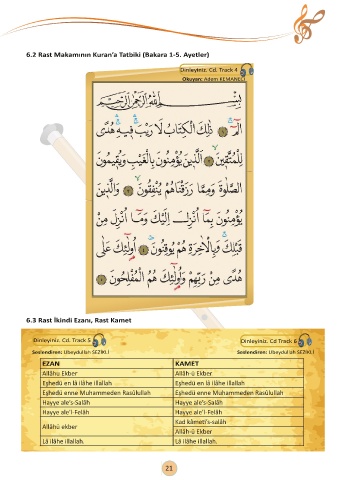 6.2 Rast Makamının Kuran'a Tatbiki (Bakara 1-5. Ayetler)
Dinleyiniz. Cd. Track 4
Okuyan: Adem KEMANECİ
بِسْمِ اللهِ الرَّحْمٰنِ الرَّحِيمِ
الٓمٓ ﴿١﴾ ذٰلِكَ الْكِتَابُ لَا رَيْبَ فِيهِ هُدًى
لِلْمُتَّقِينَ ﴿٢﴾ اَلَّذِينَ يُؤْمِنُونَ بِالْغَيْبِ وَيُقِيمُونَ
الصَّلٰوةَ وَمِمَّا رَزَقْنَاهُمْ يُنْفِقُونَ ﴿٣﴾ وَالَّذِينَ
يُؤْمِنُونَ بِمَٓا اُنْزِلَ اِلَيْكَ وَمَٓا اُنْزِلَ مِنْ
قَبْلِكَ وَبِالْاٰخِرَةِ هُمْ يُوقِنُونَ ﴿٤﴾ اُو۬لٰٓئِكَ عَلٰى
هُدًى مِنْ رَبِّهِمْ وَاُو۬لٰٓئِكَ هُمُ الْمُفْلِحُونَ ﴿٥﴾
6.3 Rast İkindi Ezanı, Rast Kamet
Dinleyiniz. Cd. Track 5
Dinleyiniz. Cd Track 6
Seslendiren: Ubeydullah SEZİKLİ
Seslendiren: Ubeydullah SEZİKLİ
EZAN KAMET
Allâhu Ekber Allâh-ü Ekber
Eşhedü en lâ ilâhe illallah Eşhedü en lâ ilâhe illallah
Eşhedü enne Muhammeden Rasûlullah Eşhedü enne Muhammeden Rasûlullah
Hayye ale's-Salâh Hayye ale's-Salâh
Hayye ale'l-Felâh Hayye ale'l-Felâh
Allâhü ekber Kad kâmeti's-salâh
Allâh-ü Ekber
Lâ ilâhe illallah. Lâ ilâhe illallah.
21